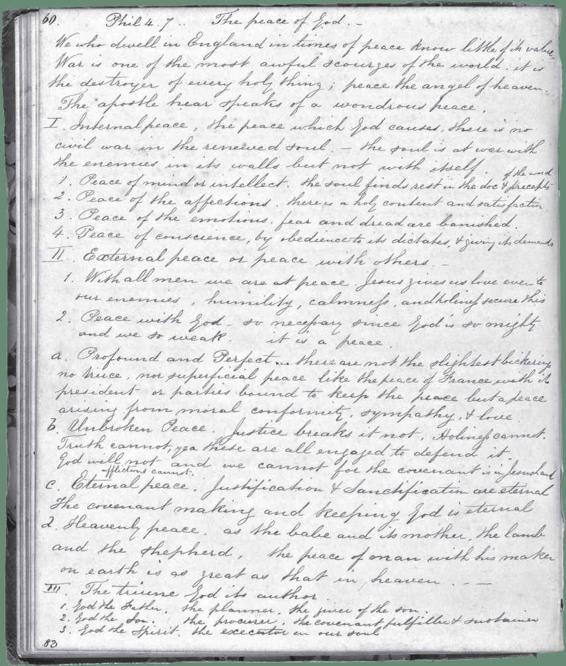 60. Phil 4. 7.. The peace of God. -
We who dwell in England in times of peace know little of its value.
War is one of the most awful scourges of the world. it is
the destroyer of every holy thing; peace the angel of heaven.
The apostle hear speaks of a wondrous peace.
I. Internal peace, the peace which God causes. there is no
civil war in the renewed soul. - the soul is at war with
the enemies in its walls but not with itself.
1. Peace of mind or intellect. the soul finds rest in the doc & precepts of the word
2. Peace of the affections. there is a holy content and satisfaction
3. Peace of the emotions. fear and dread are banished.
4. Peace of conscience, by obedience to its dictates, & giving its demands
II. External peace or peace with others. -
1. With all men we are at peace Jesus gives us love even to
our enemies, humility, calmness, and holiness secure this
2. Peace with God. so necessary since God is so mighty
and we so weak. it is a peace.
a. Profound and Perfect... there are not the slightest bickering
no truce, nor superficial peace like the peace of France with its
president or parties bound to keep the peace but a peace
arising from moral conformity, sympathy, & love
b. Unbroken Peace. Justice breaks it not. Holiness cannot.
Truth cannot, yea these are all engaged to defend it.
God will not and we cannot for the covenant is in Jesus hand
afflictions cannot.
c. Eternal peace. Justification & Sanctification are eternal
The covenant making and keeping God is eternal
d. Heavenly peace. as the babe and its mother, the lamb
and the shepherd, the peace of man with his maker
on earth is as great as that in heaven. . -
III. The triune God its author
1. God the Father. the planner, the giver of the son.
2. God the son. the procurer, the covenant fulfiller & sustainer
3. God the Spirit. the executor in our soul
83